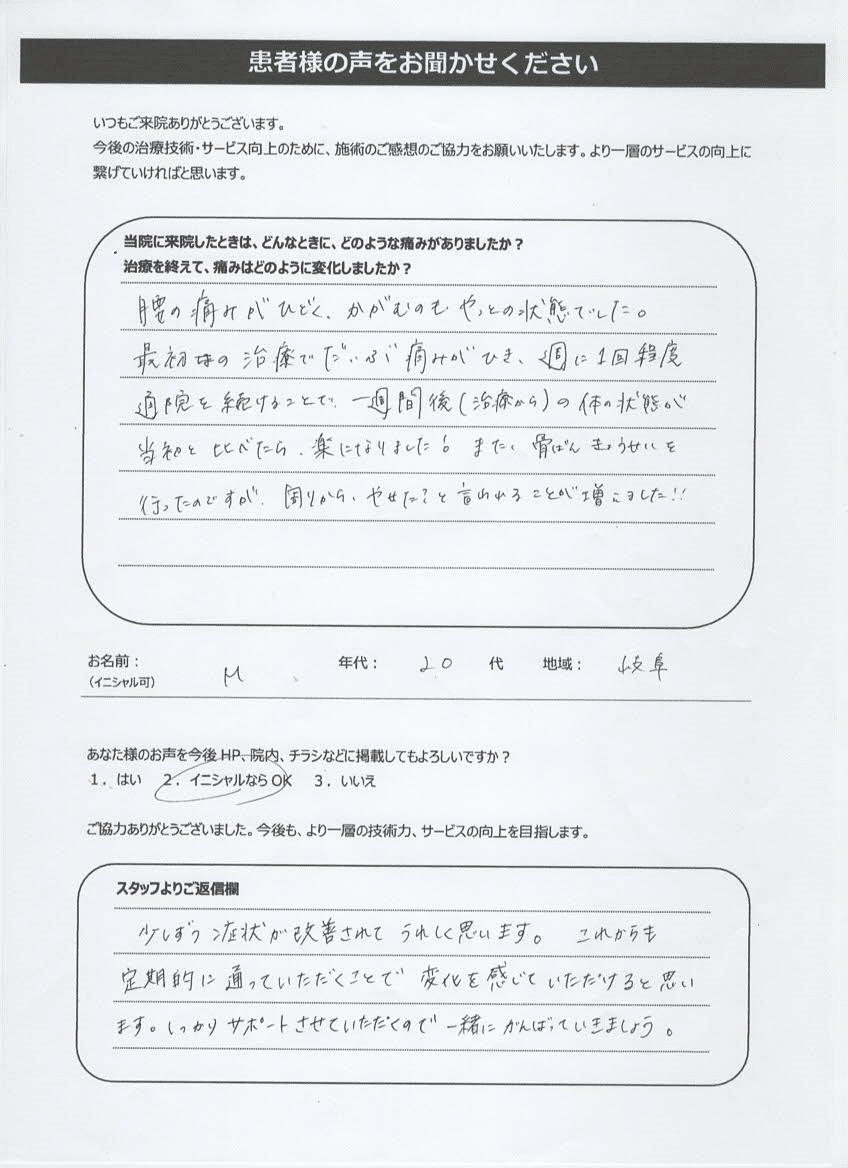 患者様の声をお聞かせください
いつもご来院ありがとうございます。
今後の治療技術・サービス向上のために、施術のご感想のご協力をお願いいたします。より一層のサービスの向上に
繋げていければと思います。
当院に来院したときは、どんなときに、どのような痛みがありましたか？
治療を終えて、痛みはどのように変化しましたか？
腰の痛みがひどく、かがむのもやっとの状態でした。
最初の治療でだいぶ痛みがひき、週に1回程度
通院を続けることで、一週間後(治療から)の体の状態が
当初と比べたら、楽になりました！また、骨ばんきょうせいを
行ったのですが、周りから、やせた?と言われることが増えました!!
お名前：
（イニシャル可） M 年代： 20 代 地域： 岐阜
あなた様のお声を今後HP、院内、チラシなどに掲載してもよろしいですか？
１．はい ２．イニシャルならOK ３．いいえ
ご協力ありがとうございました。今後も、より一層の技術力、サービスの向上を目指します。
スタッフよりご返信欄
少しずつ症状が改善されてうれしく思います。 これからも
定期的に通っていただくことで変化を感じていただけると思い
ます。しっかりサポートさせていただくので一緒にがんばっていきましょう。